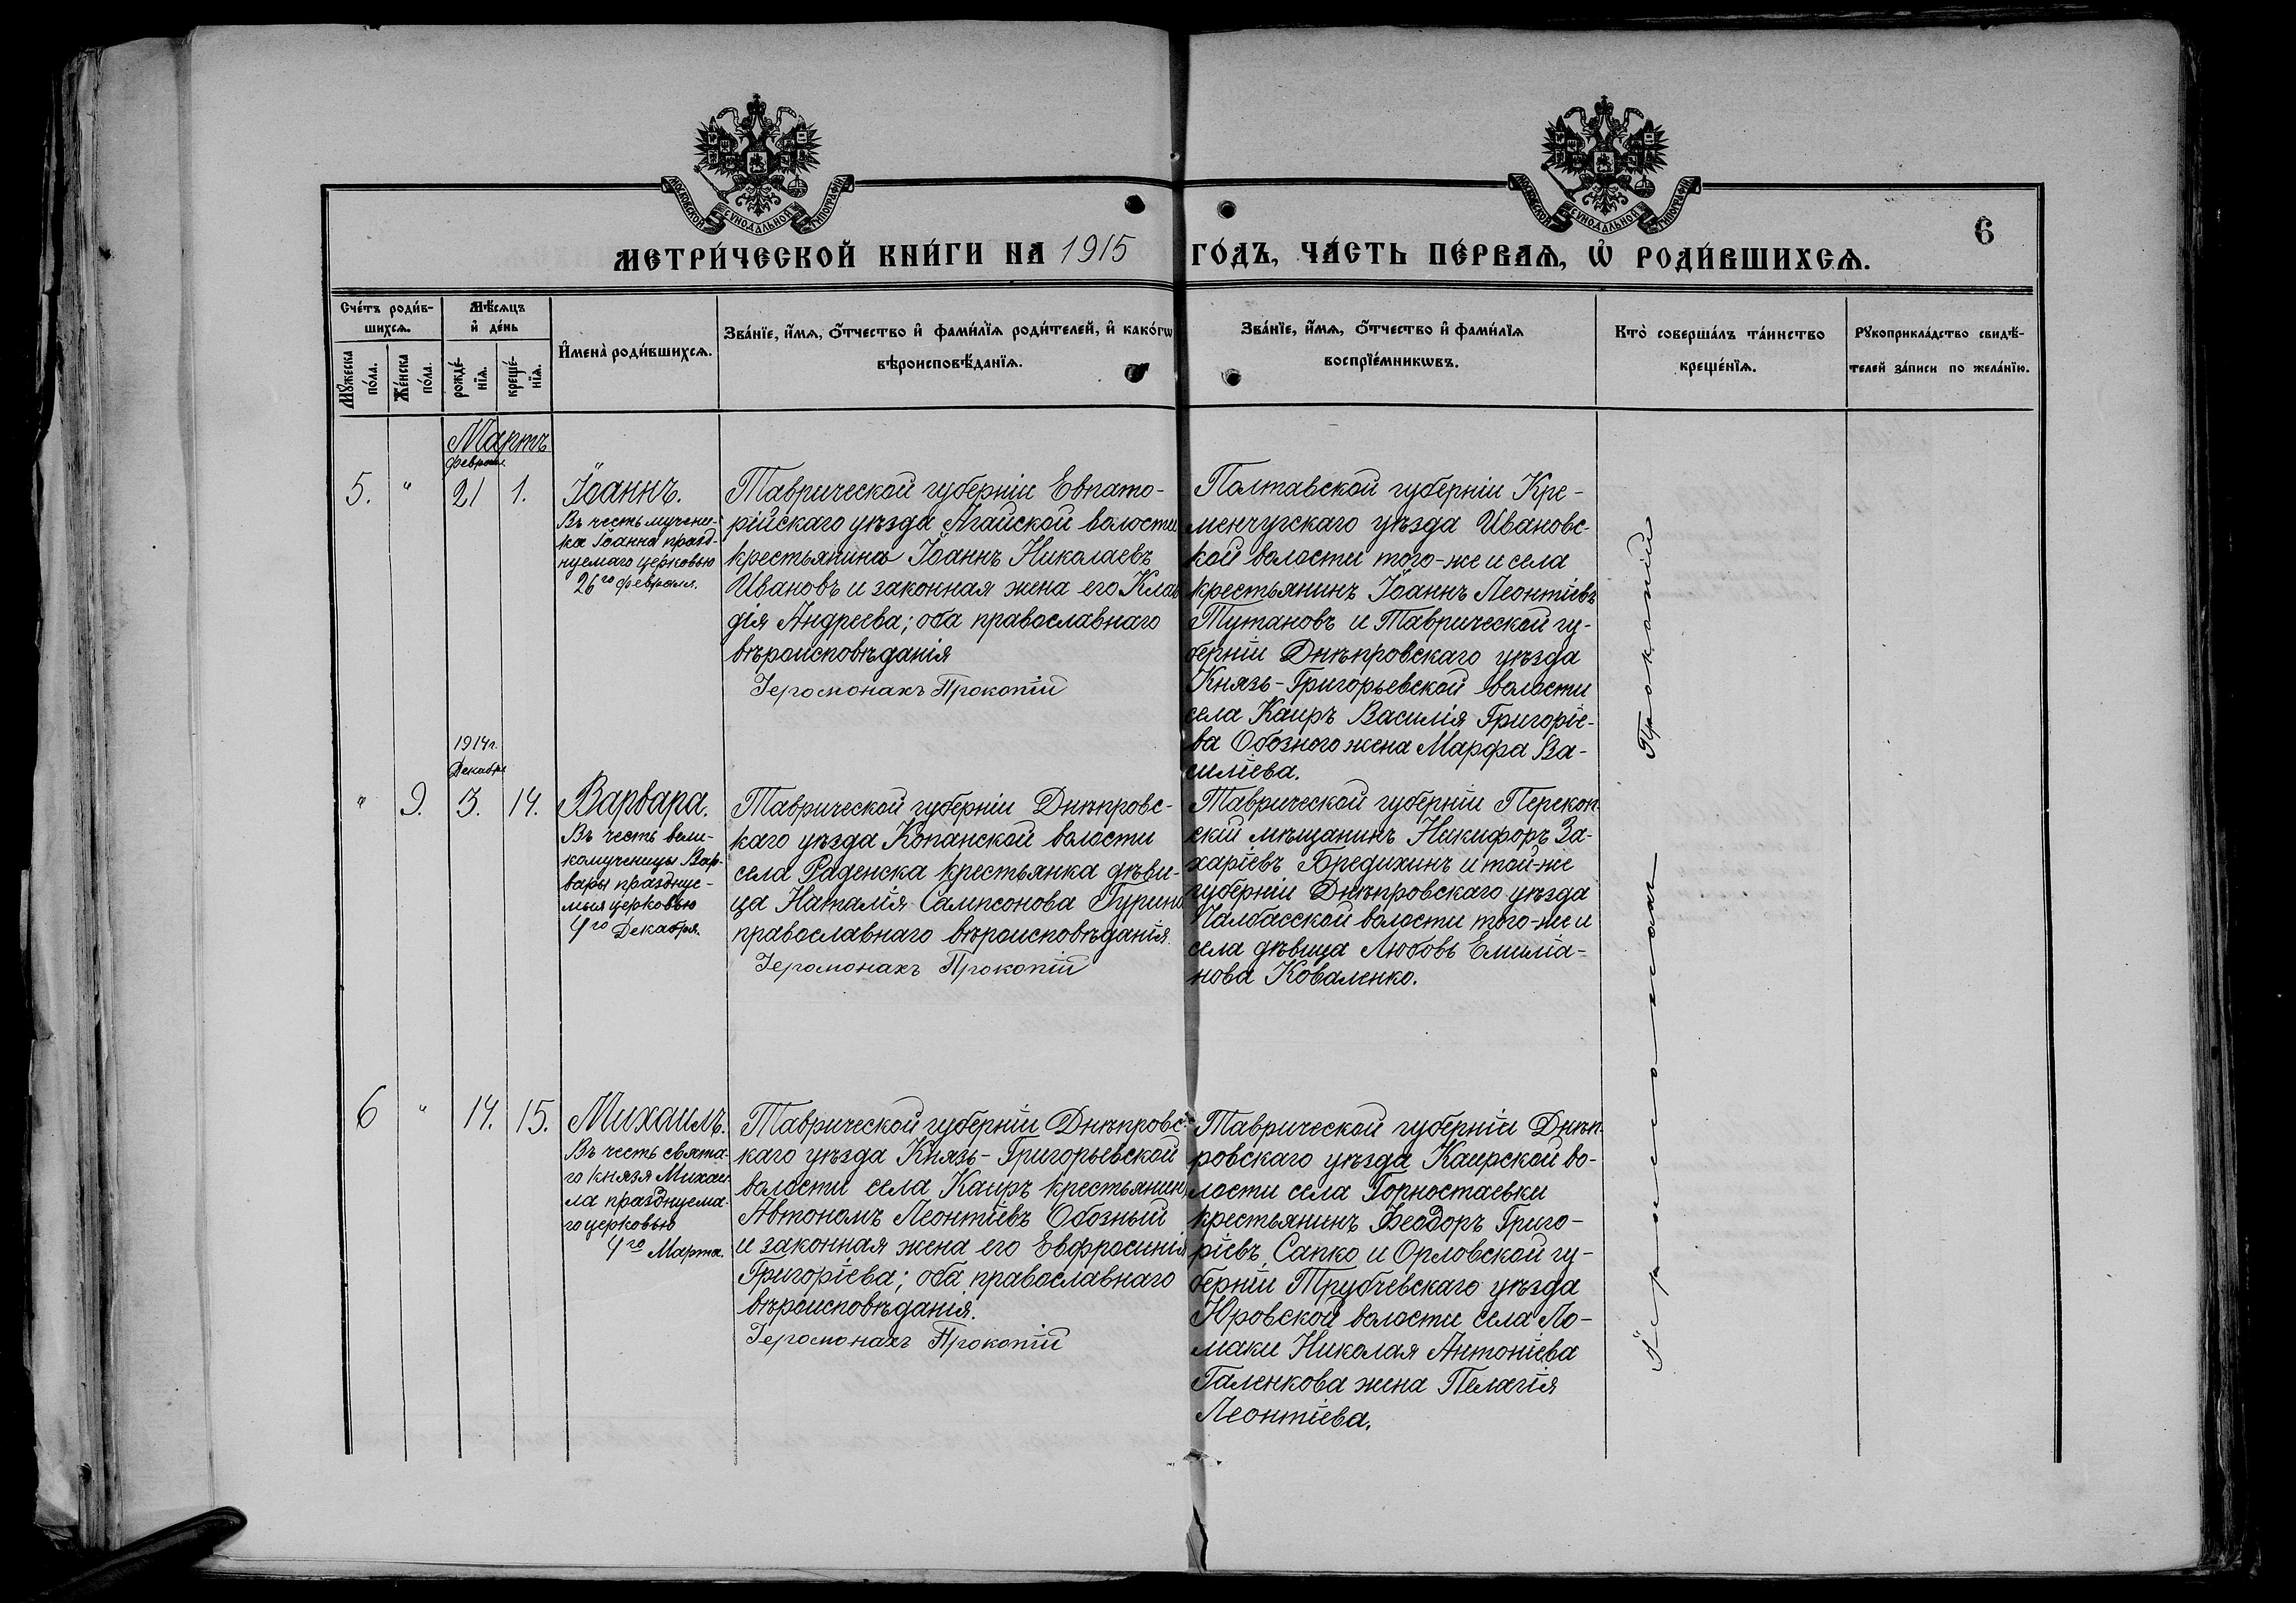 МОСКОВСКОЙ СѴНОДАЛЬНОЙ ТИПОГРАФІИ
МОСКОВСКОЙ СѴНОДАЛЬНОЙ ТИПОГРАФІИ
6
МЕТРИ́ЧЕСКОЙ КНИ́ГИ НА 1915 ГО́ДЪ, ЧА́СТЬ ПЕ́РВАѦ, Ѡ҆ РОДИ́ВШИХСѦ.
Сче́тъ роди́в-
шихсѧ.
Мꙋ́жеска
по́ла.
Же́нска
по́ла.
Мѣ́сѧцъ
и҆ де́нь
рожде́-
нїѧ.
креще́-
нїѧ.
И҆мена̀ роди́вшихсѧ.
Зва́нїе, и҆́мѧ, ѻ҆́тчество и҆ фами́лїѧ роди́телей, и҆ како́гѡ
вѣроисповѣ́данїѧ.
Зва́нїе, и҆́мѧ, ѻ҆́тчество и҆ фами́лїѧ
воспрїе́мникѡвъ.
Кто̀ соверша́лъ та́инство
креще́нїѧ.
Рꙋкоприкла́дство свидѣ́-
телей за́писи по жела́нїю.
Мартъ
февраля
5. " 21 1.
Іоаннъ.
Въ честь мучени-
ка Іоанна празд-
нуемаго церковью
26го февраля.
Таврической губерніи Евпато-
рійскаго уѣзда Агайской волости
крестьянинъ Іоаннъ Николаевъ
Ивановъ и законная жена его Клав
дія Андреева; оба православнаго
вѣроисповѣданія
Іеромонахъ Прокопій
Полтавской губерніи Кре-
менчугскаго уѣзда Ивановс-
кой волости того-же и села
крестьянинъ Іоаннъ Леонтіевъ
Тутановъ и Таврической гу-
берніи Днѣпровскаго уѣзда
Князь-Григорьевской волости
села Каиръ Василія Григоріе-
ва Обозного жена Марфа Ва-
силіева.
1914г.
Декабря
" 9. 3. 14.
Варвара.
Въ честь вели-
комученицы Вар-
вары празднуе-
мыя церковью
4го Декабря.
Таврической губерніи Днѣпровс-
каго уѣзда Копанской волости
села Раденска крестьянка дѣви-
ца Наталія Сампсонова Гурина
православнаго вѣроисповѣданія.
Іеромонахъ Прокопій
Таврической губерніи Перекоп
скій мѣщанинъ Никифоръ За-
харіевъ Бредихинъ и той-же
губерніи Днѣпровскаго уѣзда
Чалбасской волости того-же и
села дѣвица Любовь Емиліа-
нова Коваленко.
6 " 14. 15.
Михаилъ.
Въ честь свята-
го князя Михаи
ла празднуема-
го церковью
4го Марта.
Таврической губерніи Днѣпровс-
каго уѣзда Князь-Григорьевской
волости села Каиръ крестьянинъ
Автономъ Леонтіевъ Обозный
и законная жена его Евфросинія
Григоріева; оба православнаго
вѣроисповѣданія.
Іеромонахъ Прокопій
Таврической губерніи Днѣп-
ровскаго уѣзда Каирской во-
лости села Горностаевки
крестьянинъ Ѳеодоръ Григо-
ріевъ Сапко и Орловской гу-
берніи Трубчевскаго уѣзда
Юровской волости села Ло-
маки Николая Антоніева
Галенкова жена Пелагія
Леонтіева.
Іеромонахъ Прокопій